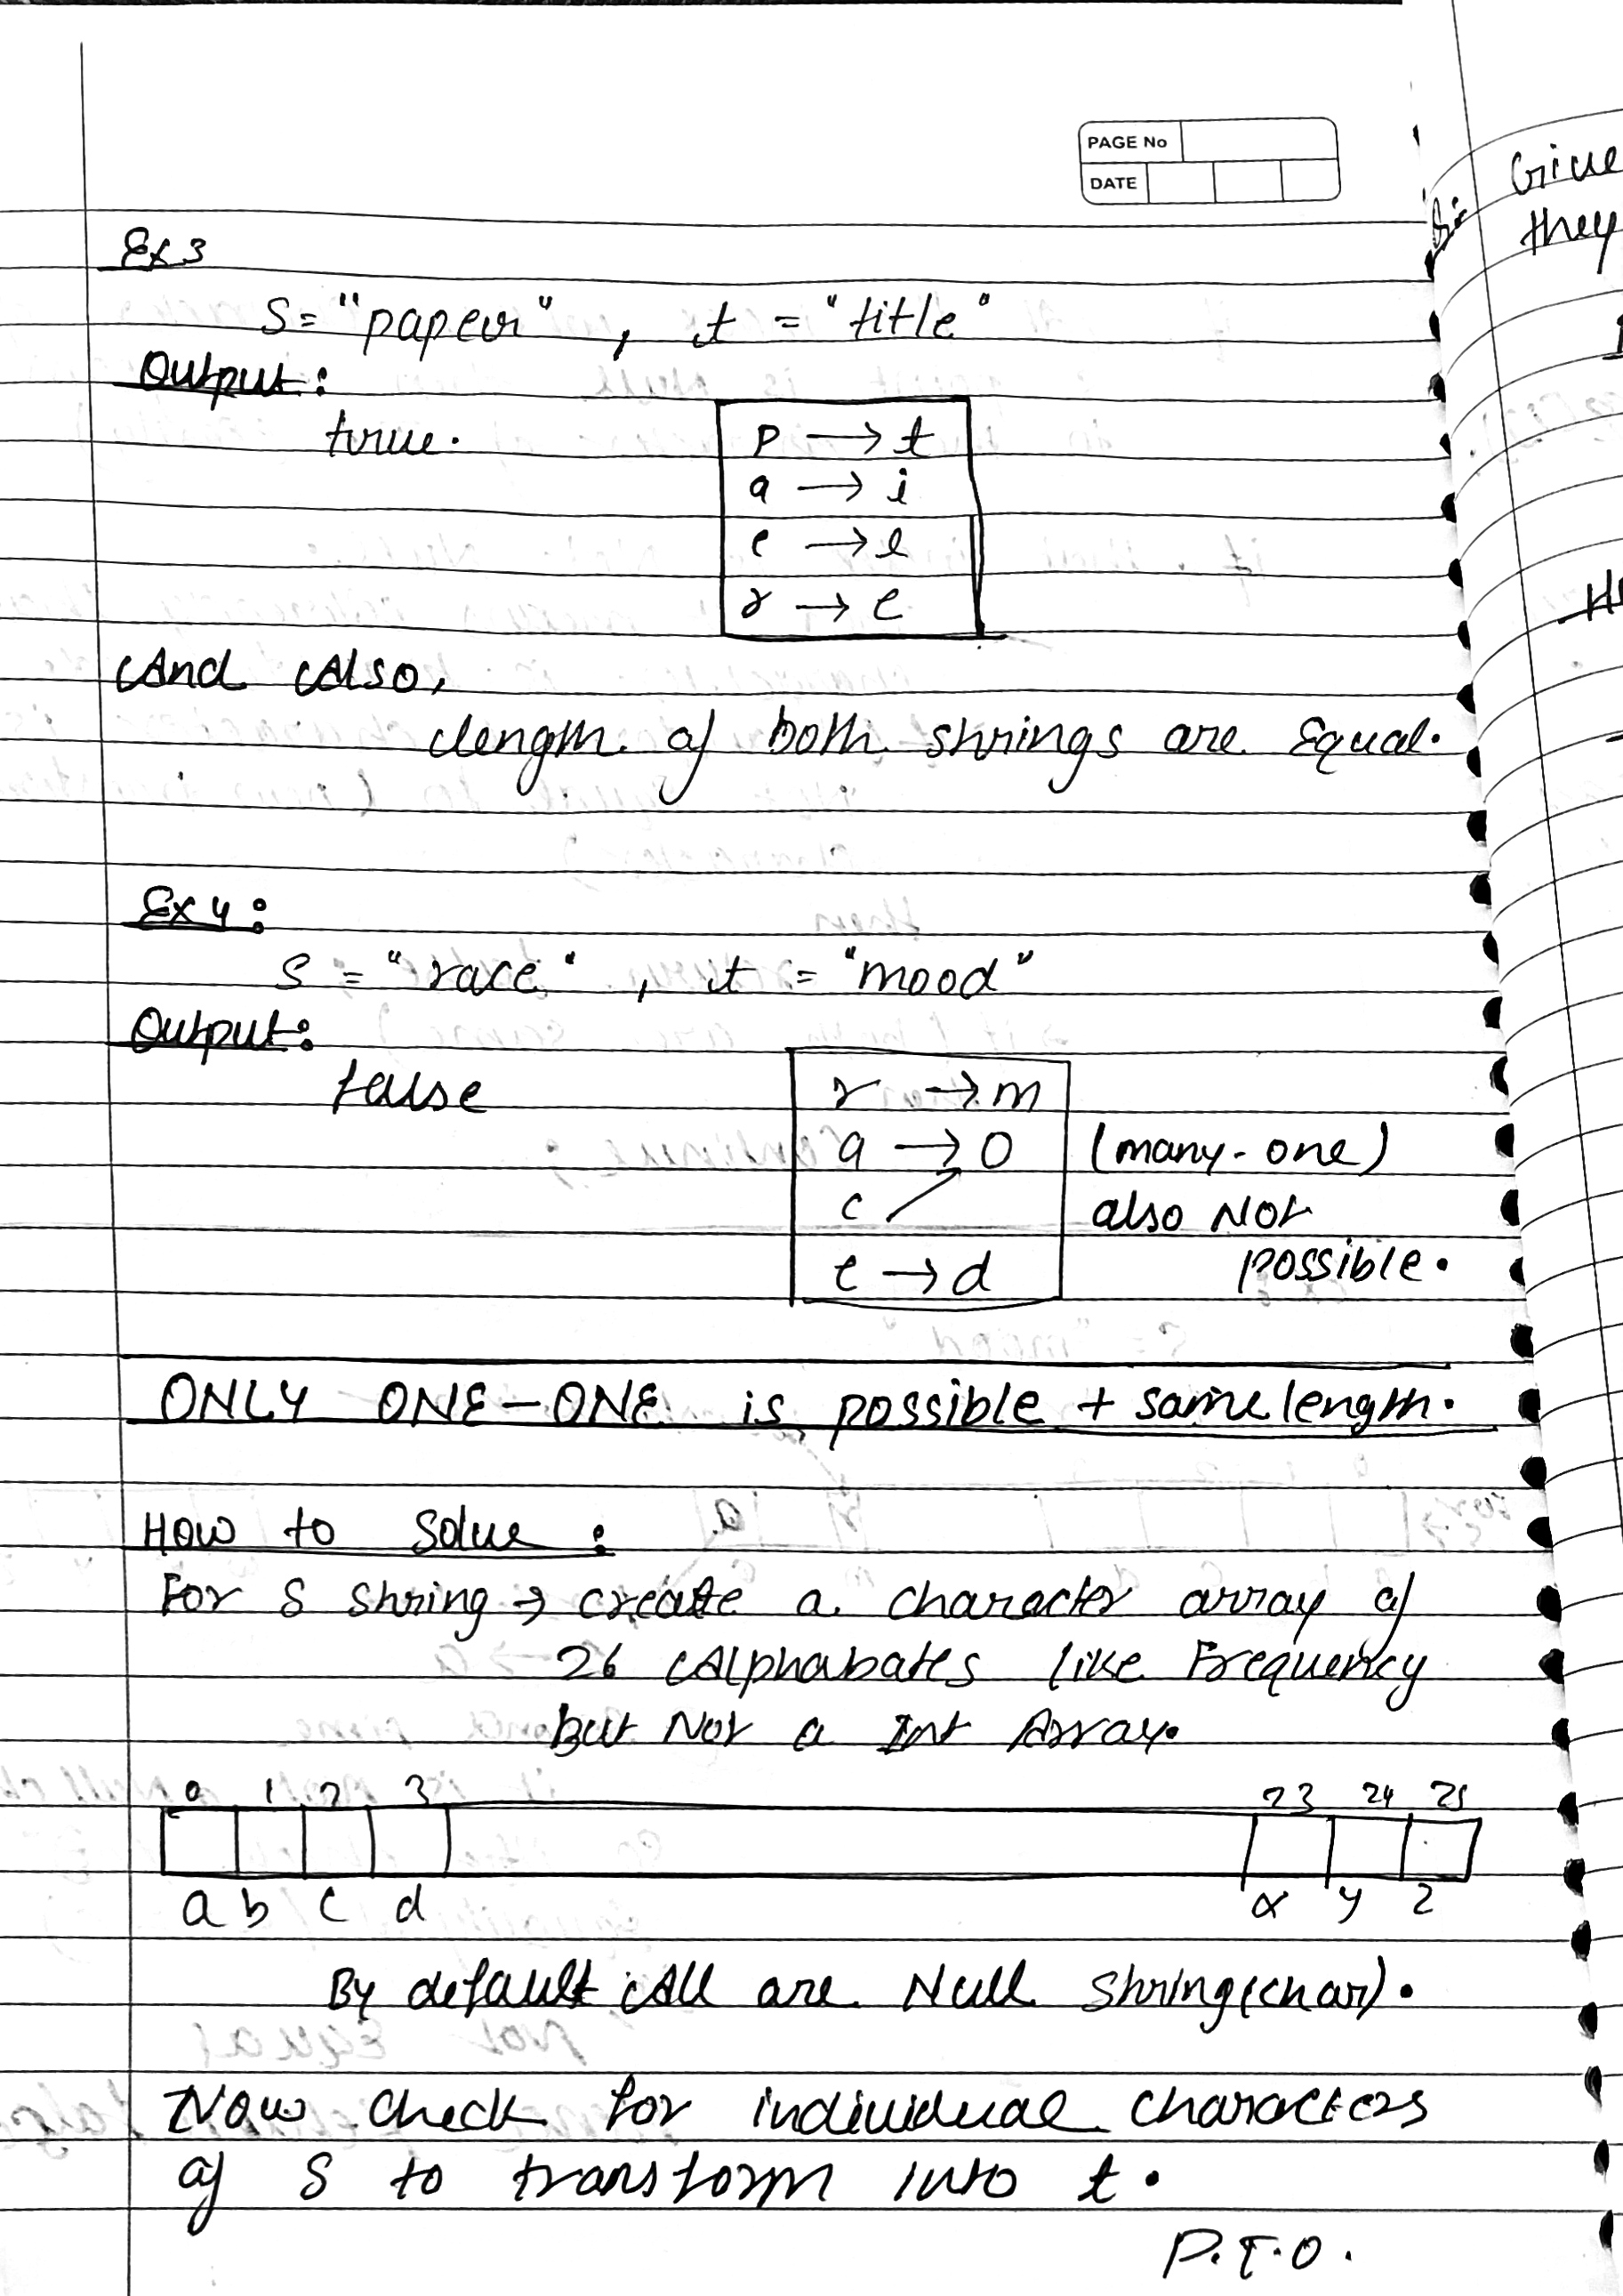 PAGE No
DATE
Ex 3
S = "paper" , t = "title"
Output:
true.
p → t
a → i
e → l
r → e
And Also,
length of both strings are Equal.
Ex 4:
S = "race" , t = "mood"
Output:
false
r → m
a → o (many-one)
c also Not
e → d possible.
ONLY ONE-ONE is possible + same length.
How to Solve:
For S string → create a character array of
26 Alphabates like Frequency
But Not a Int Array.
0 1 2 3 23 24 25
a b c d x y z
By default All are Null string(char).
Now check for individual characters
of S to transform into t.
P.T.O.
Give
they